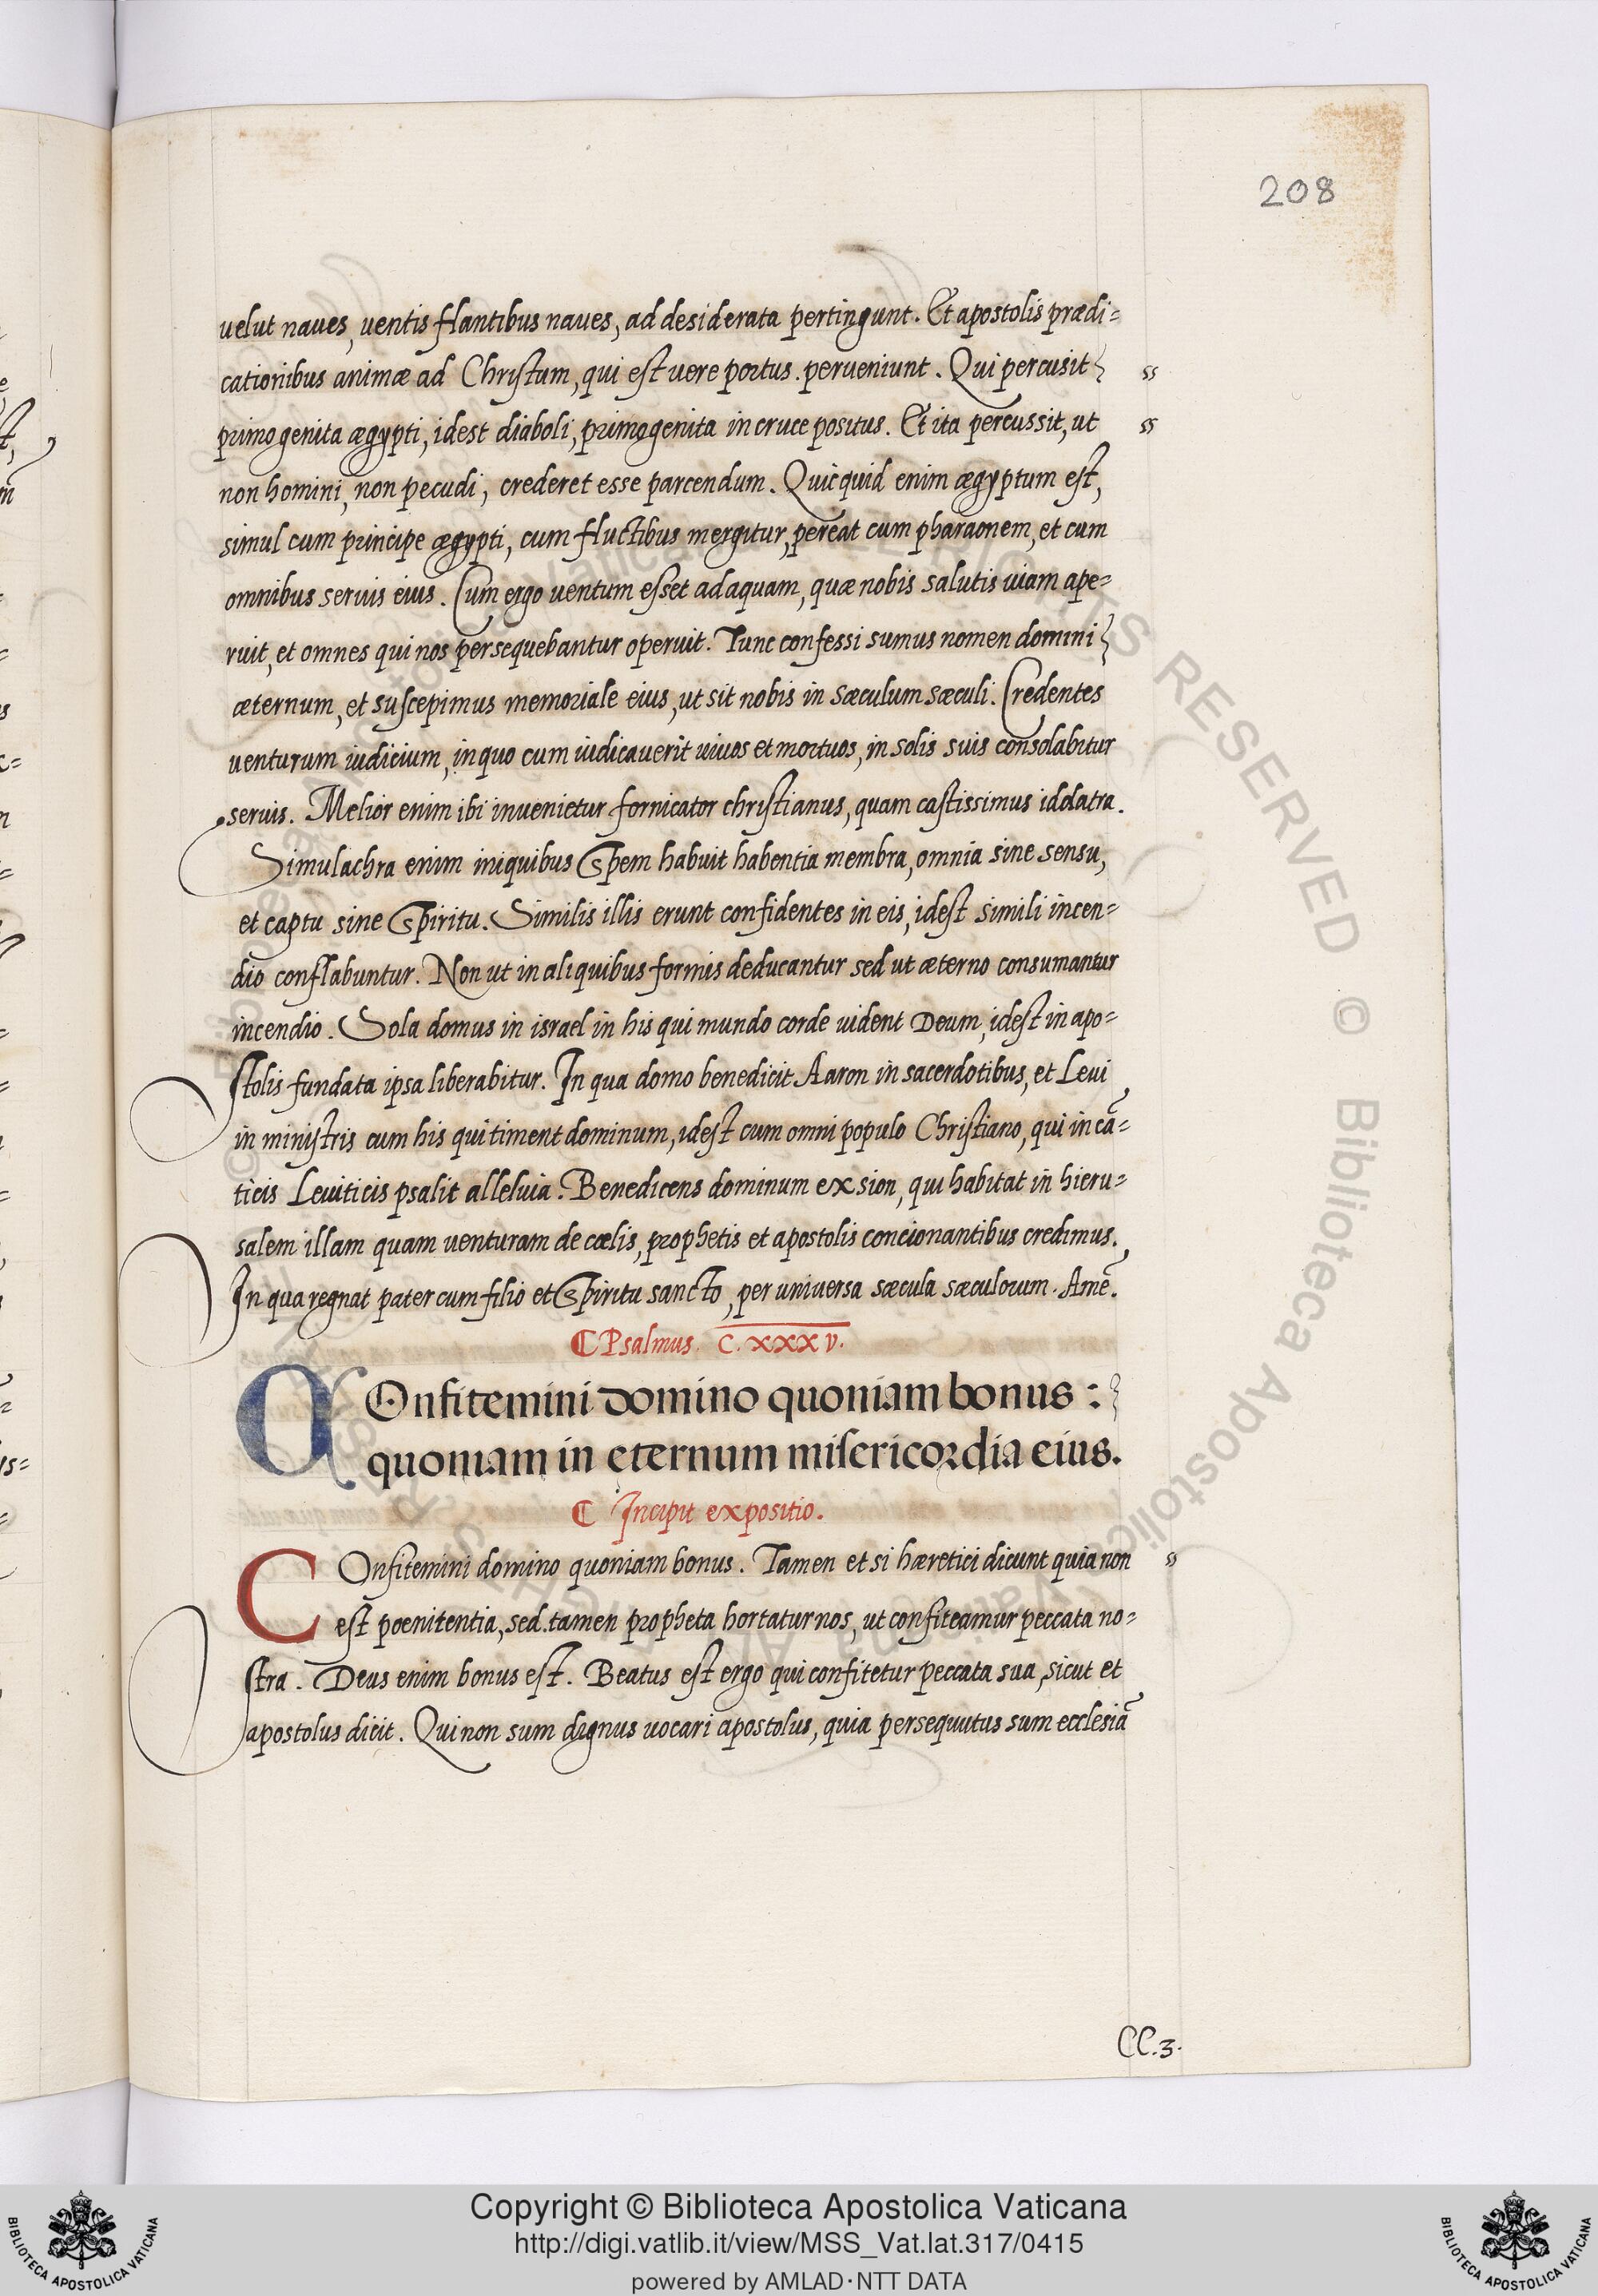 208
velut naues, uentis flantibus naues, ad desiderata pertingunt. Et apostolis prædi=
cationibus animæ ad Christum, qui est uere portus. perueniunt. Qui percusit
primogenita ægypti, idest diaboli, primogenita in cruce positus. Et ita percussit, ut
non homini, non pecudi, crederet esse parcendum. Quicquid enim ægyptum est,
simul cum principe ægypti, cum fluctibus mergitur, pereat cum pharaonem, et cum
omnibus seruis eius. Cum ergo uentum esset ad aquam, quæ nobis salutis uiam ape=
ruit, et omnes qui nos persequebantur operuit. Tunc confessi sumus nomen domini
æternum, et suscepimus memoriale eius, ut sit nobis in sæculum sæculi. Credentes
uenturum iudicium, in quo cum iudicauerit uiuos et mortuos, in solis suis consolabitur
seruis. Melior enim ibi inuenietur fornicator christianus, quam castissimus idolatra.
Simulachra enim iniquibus Spem habuit habentia membra, omnia sine sensu,
et captu sine Spiritu. Similis illis erunt confidentes in eis, idest simili incen=
dio conflabuntur. Non ut in aliquibus formis deducantur sed ut æterno consumantur
incendio. Sola domus in israel in his qui mundo corde uident Deum, idest in apo=
stolis fundata ipsa liberabitur. In qua domo benedicit Aaron in sacerdotibus, et Leui
in ministris cum his qui timent dominum, idest cum omni populo Christiano, qui in cā=
ticis Leuiticis psalit alleluia. Benedicens dominum ex sion, qui habitat in hieru=
salem illam quam uenturam de cœlis, prophetis et apostolis concionantibus credimus.
In qua regnat pater cum filio et Spiritu sancto, per uniuersa sæcula sæculorum. Amē.
Psalmus. C. xxxv.
COnfitemini domino quoniam bonus :
quoniam in eternum misericordia eius.
Incipit expositio.
COnfitemini domino quoniam bonus. Tamen et si hæretici dicunt quia non
est poenitentia, sed tamen propheta hortatur nos, ut confiteamur peccata no=
stra. Deus enim bonus est. Beatus est ergo qui confitetur peccata sua, sicut et
apostolus dicit. Qui non sum dignus uocari apostolus, quia persequutus sum ecclesiā
CC.3.
Copyright © Biblioteca Apostolica Vaticana
http://digi.vatlib.it/view/MSS_Vat.lat.317/0415
powered by AMLAD·NTT DATA